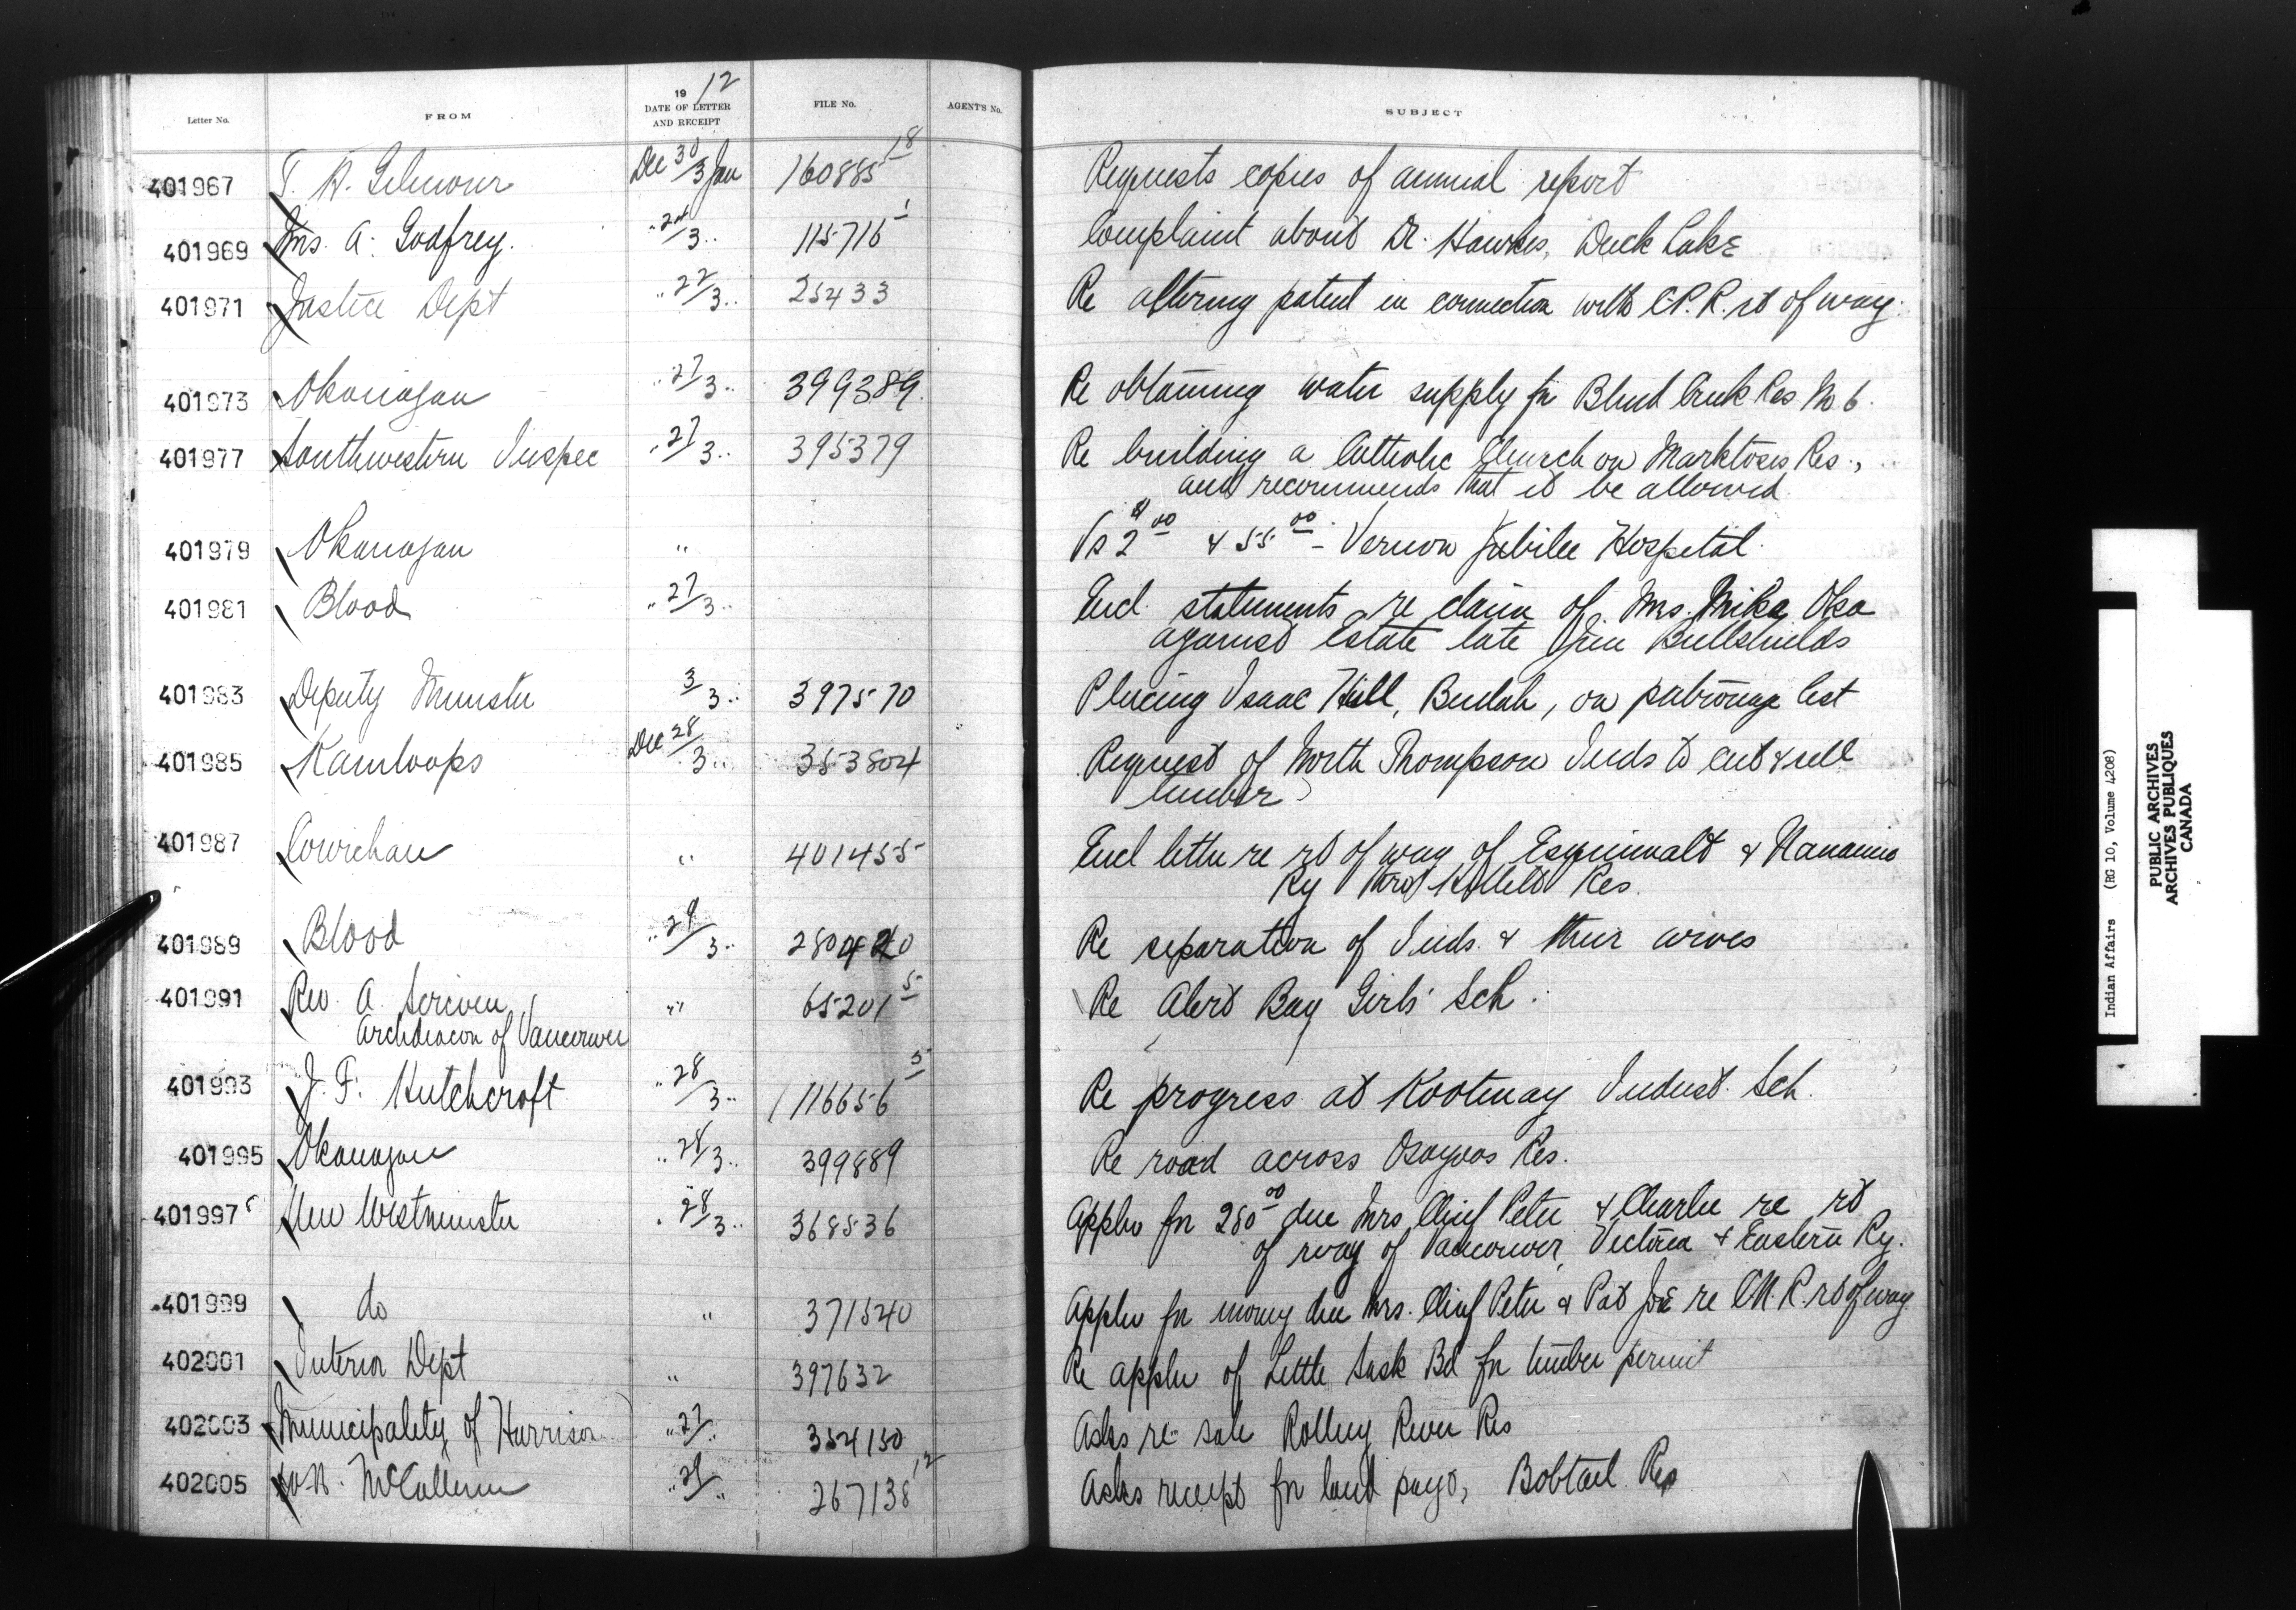 Letter No. FROM 1912 DATE OF LETTER AND RECEIPT FILE No. AGENT'S No. SUBJECT
401967 T. A. Gilmour Dec 30/3 Jan 160885 18 Requests copies of annual report
401969 Mrs. A. Godfrey. " /3 " 115716 1 Complaint about Dr. Hawkes, Duck Lake
401971 Justice Dept " 22/3 " 25433 Re altering patent in connection with C.P.R. rt of way.
401973 Okanagan " 27/3 " 399389 Re obtaining water supply for Blind Creek Res No 6.
401977 Southwestern Inspec " 27/3 " 395379 Re building a Catholic Church on Marktosis Res.,
and recommends that it be allowed.
401979 Okanagan " Vs $2 00 & 55 00 - Vernon Jubilee Hospital.
401981 Blood " 27/3 " Encl. statements re claim of Mrs. Mika Oka
against Estate late Jim Bullshields
401983 Deputy Minister 3/3 " 397570 Placing Isaac Hill, Beulah, on patronage list
401985 Kamloops Dec 28/3 " 353804 Request of North Thompson Inds to cut & sell
timber
401987 Cowichan " 401455 Encl letter re rt of way of Esquimalt & Nanaimo
Ry thro Res.
401989 Blood " 29/3 " 280420 Re separation of Inds. & their wives
401991 Rev. A. Scriven " 65201 5 Re Alert Bay Girls' Sch.
Archdeacon of Vancouver
401993 J. F. Hutchcroft " 28/3 " 116656 5 Re progress at Kootenay Indust. Sch.
401995 Okanagan " 28/3 " 399889 Re road across Osoyoos Res.
401997 New Westminster " 28/3 " 368536 Appln for 280 00 due Mrs Chief Peter & Charlie re rt
of way of Vancouver, Victoria & Eastern Ry.
401999 do " 371540 Appln for money due Mrs. Chief Peter & Pat Joe re C.N.R. rt of way
402001 Interior Dept " 397632 Re appln of Little Sask Bd for timber permit
402003 Municipality of Harrison " 27/" 354150 Asks re sale Rolling River Res
402005 W. N. McCallum " 29/" 267138 12 Asks receipt for land payt, Bobtail Res
Indian Affairs (RG 10, Volume 4208)
PUBLIC ARCHIVES
ARCHIVES PUBLIQUES
CANADA